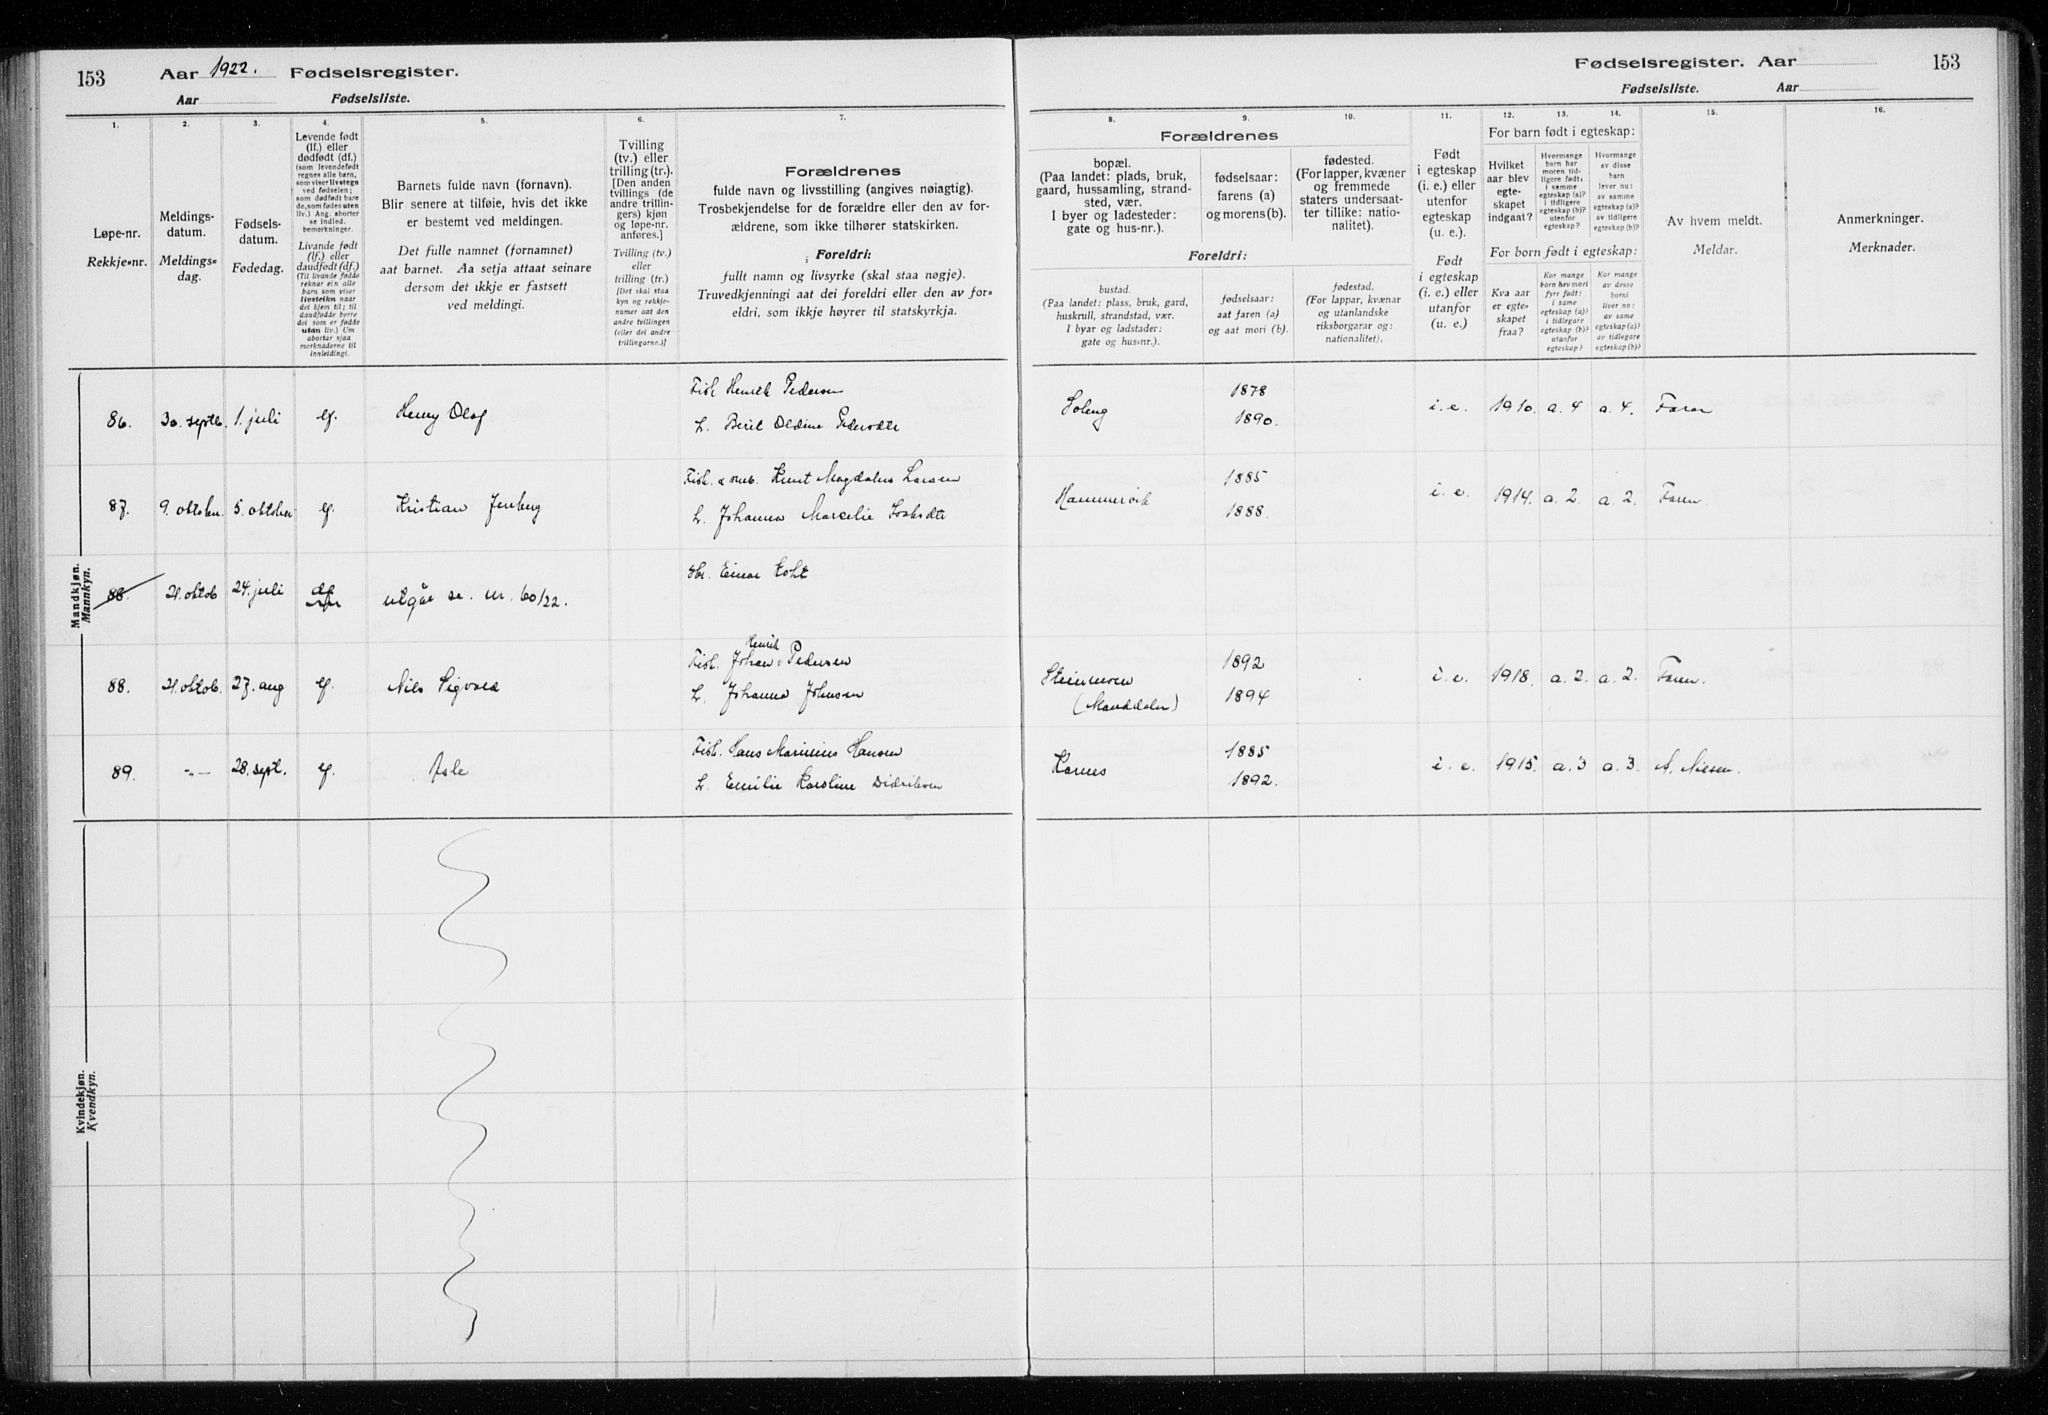 153 Aar 1922. Fødselsregister.
Aar Fødselsliste.
Fødselsregister. Aar 153
Fødselsliste. Aar
1. 2. 3. 4. 5. 6. 7.
Løpe-nr.
Rekkje-nr.
Meldings-
datum.
Meldings-
dag.
Fødsels-
datum.
Fødedag.
Levende født
(lf.) eller
dødfødt (df.)
(som levendefødt
regnes alle barn,
som viser livstegn
ved fødselen;
som dødfødt bare
de, som fødes uten
liv.) Ang. aborter
se indled.
bemerkninger.
Livande født
(lf.) eller
daudfødt (df.)
(Til livande fødde
reknar ein alle
barn som viser
livsteikn naar
dei kjem til; til
daudfødde berre
dei som er fødde
utan liv.) Um
abortar sjaa
merknaderne til
innleidingi.
Barnets fulde navn (fornavn).
Blir senere at tilføie, hvis det ikke
er bestemt ved meldingen.
Det fulle namnet (fornamnet)
aat barnet. Aa setja attaat seinare
dersom det ikkje er fastsett
ved meldingi.
Tvilling
(tv.) eller
trilling (tr.).
[Den anden
tvillings (de
andre trillin-
gers) kjøn
og løpe-nr.
anføres.]
Tvilling (tv.)
eller
trilling (tr.)
[Det skal staa
kyn og rekkje-
numer aat den
andre tvillingen
(eller dei andre
trillingarne.)]
Forældrenes
fulde navn og livsstilling (angives nøiagtig).
Trosbekjendelse for de forældre eller den av for-
ældrene, som ikke tilhører statskirken.
Foreldri:
fullt namn og livsyrke (skal staa nøgje).
Truvedkjenningi aat dei foreldri eller den av for-
eldri, som ikkje høyrer til statskyrkja.
8. 9. 10. 11. 12. 13. 14. 15. 16.
Forældrenes
bopæl.
(Paa landet: plads, bruk,
gaard, hussamling, strand-
sted, vær.
I byer og ladesteder:
gate og hus-nr.).
fødselsaar:
farens (a)
og morens (b).
fødested.
(For lapper, kvæner
og fremmede
staters undersaat-
ter tillike: natio-
nalitet).
Foreldri:
bustad.
(Paa landet: plass, bruk, gard,
huskrull, strandstad, vær.
I byar og ladstader:
gate og hus-nr.).
fødselsaar:
aat faren (a)
og aat mori (b).
fødestad.
(For lappar, kvænar
og utanlandske
riksborgarar og:
nationalitet).
Født
i egteskap
(i. e.) eller
utenfor
egteskap
(u. e.).
Født
i egteskap
(i. e.) eller
utanfor
(u. e.)
For barn født i egteskap:
Hvilket
aar blev
egte-
skapet
indgaat?
Hvormange
barn har
moren tid-
ligere født,
i samme
egteskap (a)?
i tidligere
egteskap (b)?
utenfor
egteskap?
Hvormange
av disse
barn
lever nu:
av samme
egteskap (a)?
av tidligere
egteskap (b)?
For born født i egteskap:
Kva aar
er egte-
skapet
fraa?
Kor mange
born hev mori
fyrr født:
i same
egteskap (a)?
i tidlegare
egteskap (b)?
utanfor
egteskap?
Kor mange
av desse
borni
liver no:
av same
egteskap (a)?
av tidlegare
egteskap (b)?
Av hvem meldt.
Meldar.
Anmerkninger.
Merknader.
Mandkjøn.
Mannkyn.
86. 30. septb. 1. juli lf. Henry Olaf Fisk. Henrik Pedersen Soleng 1878 i. e. 1910. a. 4 a. 4. Faren
L. Berit Oldine Pedersdtr 1890.
87. 9. oktober. 5. oktober lf. Kristian Jenberg Fisk. & Knut Magdalus Larsen Hammervik 1885 i. e. 1914. a. 2 a. 2. Faren.
L. Johanna Marcelie 1888.
88. 21. oktob 24. juli df utgår se. nr. 60/22. Einar Koht
88. 21. oktob. 27. aug lf. Nils Sigvald Fisk. Johan Henrik Pedersen Steinmoen 1892 i. e. 1918. a. 2. a. 2. Faren.
L. Johanna Johnsen (Manddalen) 1894
89. -"- 28. sept. lf. Asle Fisk. Hans Marinius Hansen Karnes 1885 i. e. 1915. a. 3 a. 3. A. Nilsen.
L. Emilie Karoline Didriksen 1892.
Kvindekjøn.
Kvendkyn.